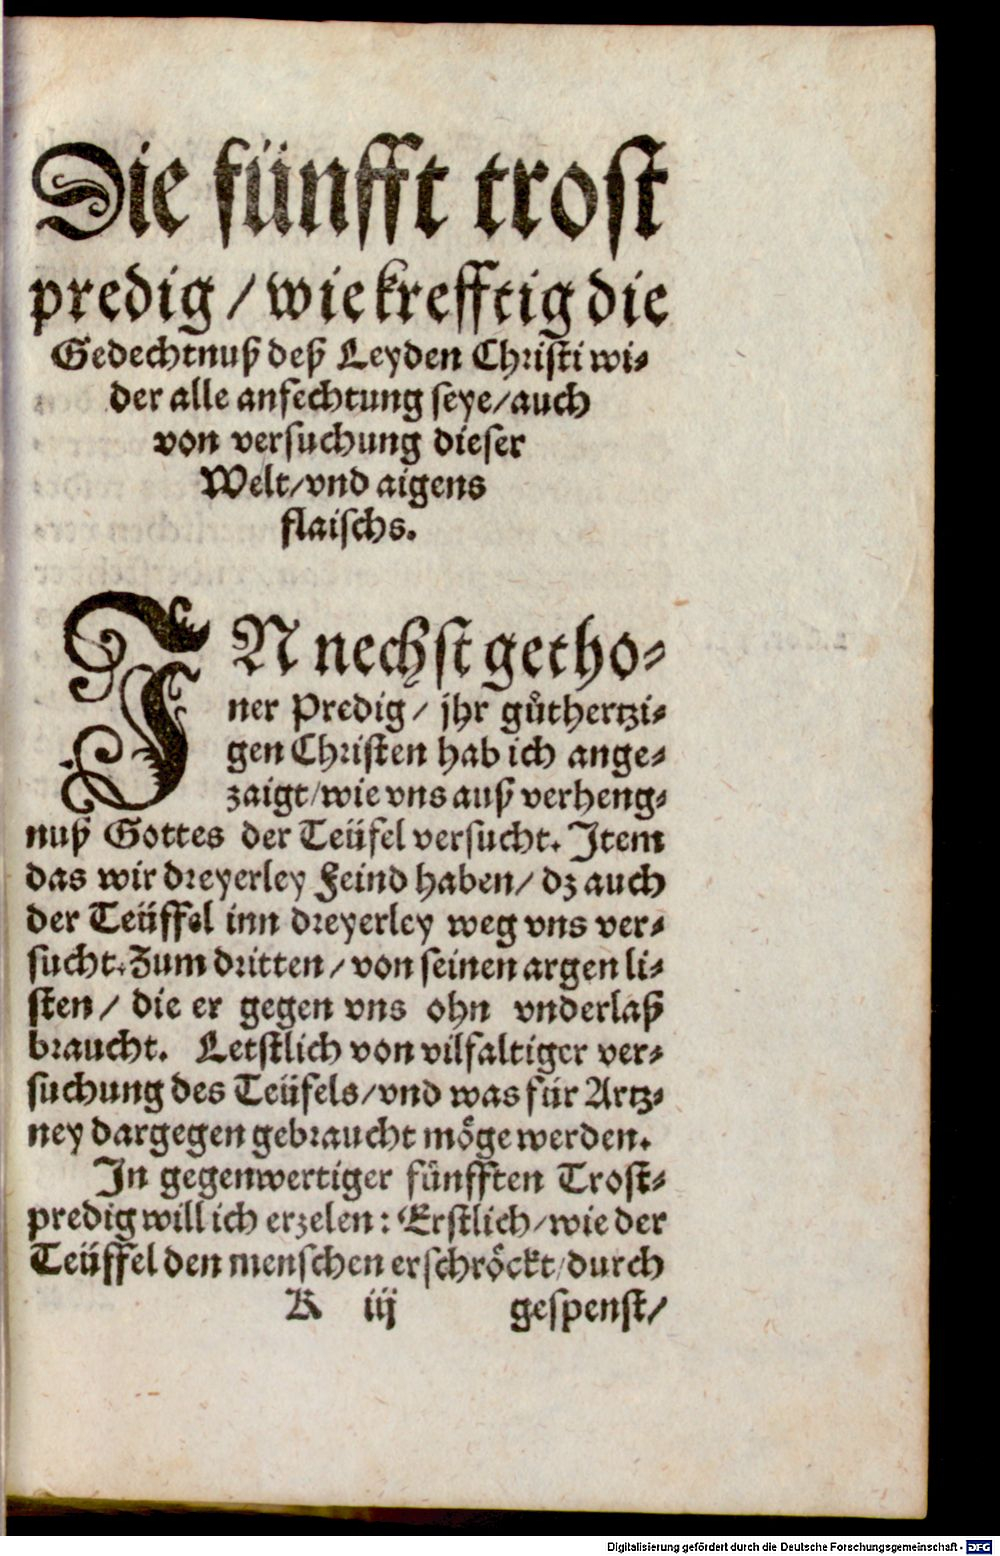 Die fünfft trost
predig / wie krefftig die
Gedechtnuß deß Leyden Christi wi-
der alle anfechtung seye/auch
von versuchung dieser
Welt/vnd aigens
flaischs.
IN nechst getho-
ner Predig / jhr gůthertzi-
gen Christen hab ich ange-
zaigt/wie vns auß verheng-
nuß Gottes der Teüfel versucht. Item
das wir dreyerley Feind haben/ dz auch
der Teüffel inn dreyerley weg vns ver-
sucht. Zum dritten / von seinen argen li-
sten / die er gegen vns ohn vnderlaß
braucht. Letstlich von vilfaltiger ver-
suchung des Teüfels/vnd was für Artz-
ney dargegen gebraucht möge werden.
In gegenwertiger fünfften Trost-
predig will ich erzelen: Erstlich/wie der
Teüffel den menschen erschröckt/durch
K iij gespenst/
Digitalisierung gefördert durch die Deutsche Forschungsgemeinschaft - DFG